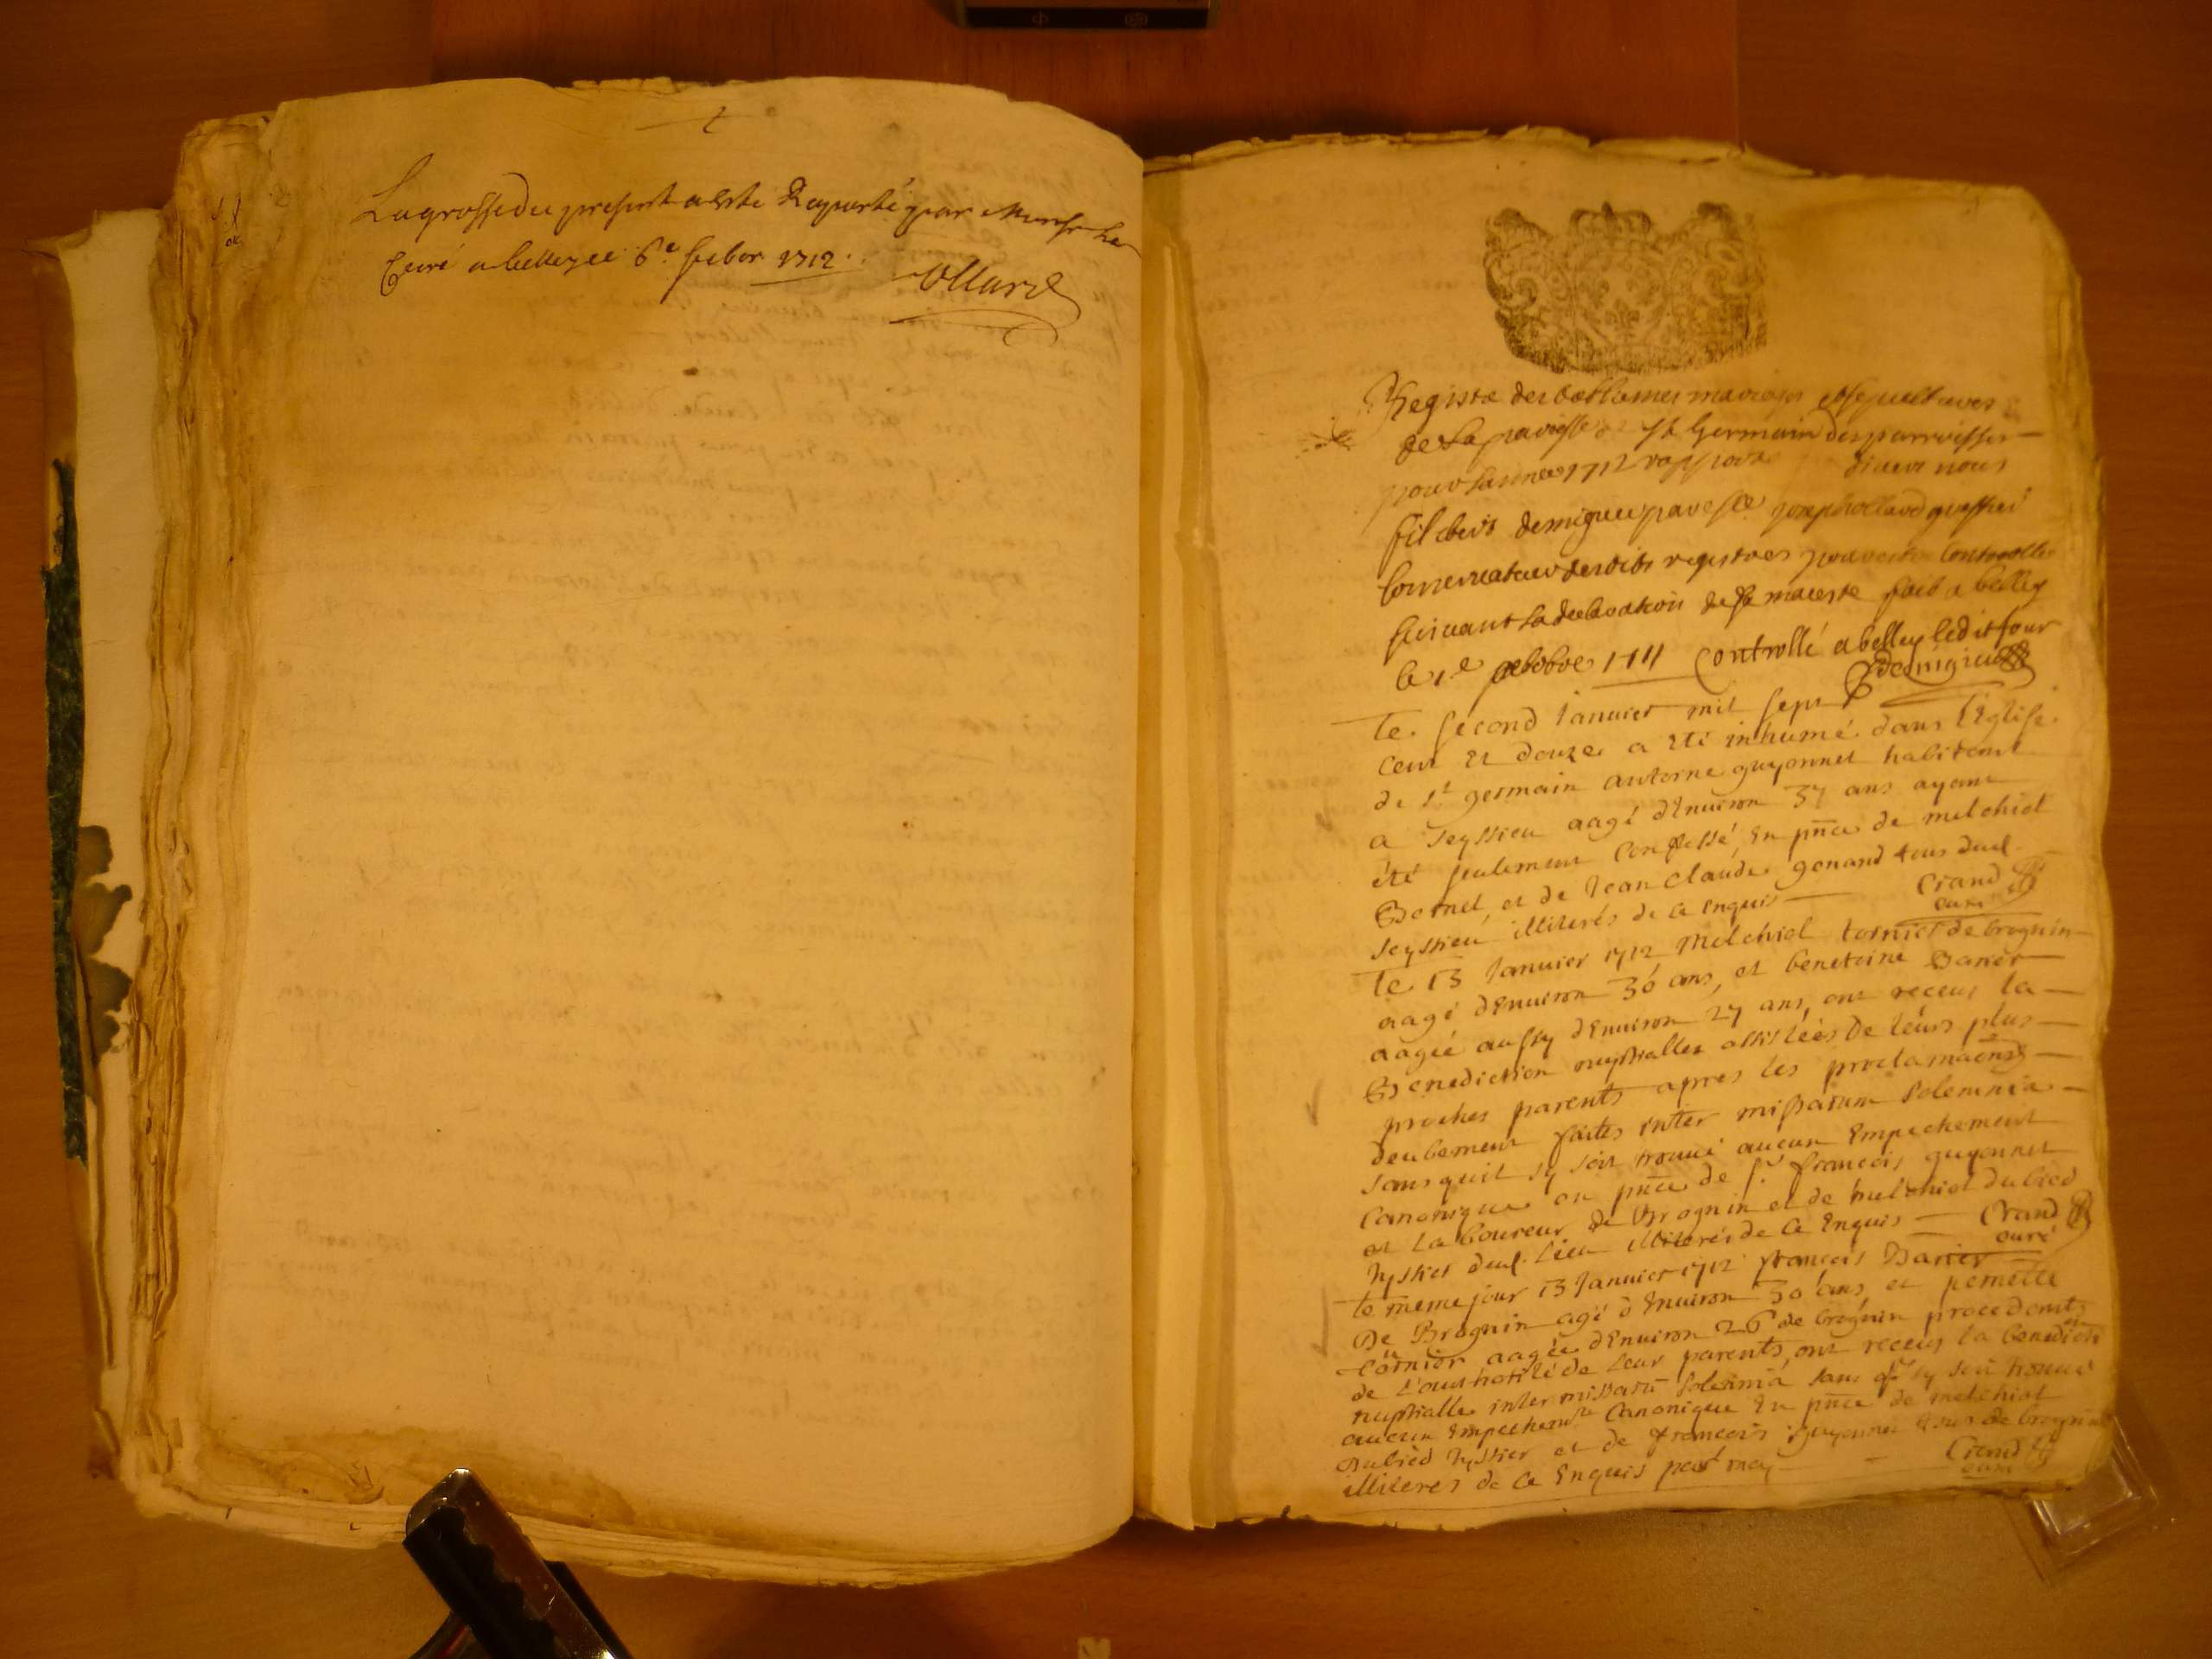 La grosse du present a esté Raporté par Monsr Le
Curé a belley ce 6e febvr 1712.
Ollard
Registre des battemes mariages et sepultures
de La paroisse St Germain des parroisses
pour Lannee 1712 diceux nous
de migieu joseph ollard greffier
Conservateur desdits registres pour estre Controllé
suivant La declaration de sa maiesté fait a belley
le 1e octobre 1711 Controllé a belley ledit jour
Demigieu
Le second Januier mil sept
cent et douze a eté inhumé dans l'Eglise
de St germain antoine guyonnet habitant
a Seyssieu aagé d'Enuiron 37 ans ayant
été seulement confessé, En pñce de melchiol
Bornet, et de Jean claude gonand tous dud.
Seyssieu illiterés de ce Enquis
Crand
curé
Le 13 Januier 1712 Melchiol tornier de brognin
aagé d'Enuiron 36 ans, et benetoine Barier
aagée aussy d'Enuiron 27 ans, ont receus la
Benediction nuptialle assistées de leurs plus
proches parents apres les proclamaõns
deubement faites inter missarum solemnia
sans quil sy soit trouué aucun Empechement
Canonique en pñce de sr francois guyonnet
et Laboureur de Brognin et de melchiol dubied
hystier dud. lieu illiterés de ce Enquis
Crand
curé
Le meme jour 13 Januier 1712 francois Barier
De Brognin agé d'Enuiron 30 ans, et pernette
tornier aagée d'Enuiron 26 de brognin procedants
de l'authorité de leur parents, ont receus la benedion
nuptialle inter missarũ solemnia sans qt sy soit trouué
aucun Empechemt Canonique En pñce de melchiol
Dubied hystier et de francois guyonnet tous de brognin
illiteres de ce Enquis par moy
Crand
curé